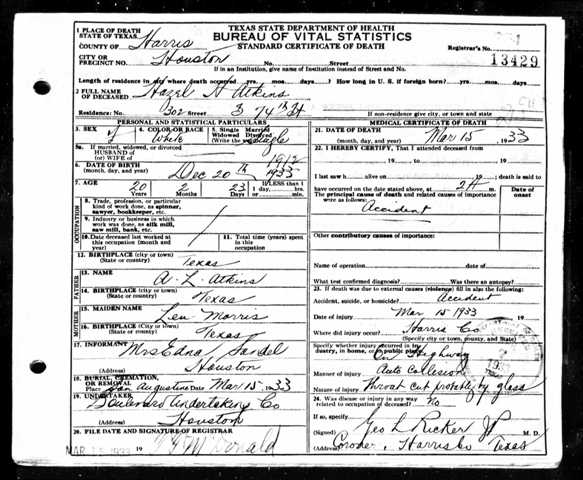 TEXAS STATE DEPARTMENT OF HEALTH
BUREAU OF VITAL STATISTICS
STANDARD CERTIFICATE OF DEATH
1 PLACE OF DEATH
STATE OF TEXAS
COUNTY OF Harris
CITY OR
PRECINCT NO. Houston
No. Street
Registrar's No.
13429
If in an Institution, give name of Institution instead of Street and No.
Length of residence in city where death occurred yrs. mos. days. How long in U. S. if foreign born? yrs. mos. days.
2 FULL NAME
OF DECEASED Hazel H Atkins
Residence: No. 302 E 74th St
If non-residence give city or town, county and State.
PERSONAL AND STATISTICAL PARTICULARS
3. SEX F
4. COLOR OR RACE White
5. Single Married
Widowed Divorced
(Write the word) Single
5a. If married, widowed, or divorced
HUSBAND of
(or) WIFE of
6. DATE OF BIRTH
(month, day, and year) Dec 20th 1912
1933
7. AGE 20 Years 2 Months 23 Days If LESS than 1
1 day, hrs.
or min.
OCCUPATION
8. Trade, profession, or particular
kind of work done, as spinner,
sawyer, bookkeeper, etc.
9. Industry or business in which
work was done, as silk mill,
saw mill, bank, etc.
10. Date deceased last worked at
this occupation (month and
year)
11. Total time (years) spent in
this occupation
12. BIRTHPLACE (city or town)
(State or country) Texas
FATHER
13. NAME A. L. Atkins
14. BIRTHPLACE (city or town)
(State or country) Texas
MOTHER
15. MAIDEN NAME Len Morris
16. BIRTHPLACE (city or town)
(State or country) Texas
17. INFORMANT Mrs Edna Sandel
(Address) Houston
18. BURIAL, CREMATION,
OR REMOVAL
Place San Augustine Date Mar 15 1933
19. UNDERTAKER Boulevard Undertaking Co
(Address) Houston
20. FILE DATE AND SIGNATURE OF REGISTRAR
MAR 1933 19
MEDICAL CERTIFICATE OF DEATH
21. DATE OF DEATH
(month, day, and year) Mar 15 1933
22. I HEREBY CERTIFY, That I attended deceased from
19 to 19
I last saw h alive on 19 ; death is said to
have occurred on the date stated above, at 2 A m.
The principal cause of death and related causes of importance
were as follows:
Date of
onset
Accident
Other contributory causes of importance:
Name of operation
What test confirmed diagnosis? Was there an autopsy?
23. If death was due to external causes (violence) fill in also the following:
Accident, suicide, or homicide? Accident
Date of injury Mar 15 1933 19
Where did injury occur? Harris Co
(Specify city or town, county, and State)
Specify whether injury occurred in industry, in home, or in public place
On Highway
Manner of injury Auto Collision
Nature of injury Throat cut probably by glass
24. Was disease or injury in any way
related to occupation of deceased? No
If so, specify
(Signed) Geo L Ricker JP M. D.
(Address) Coroner, Harris Co Texas